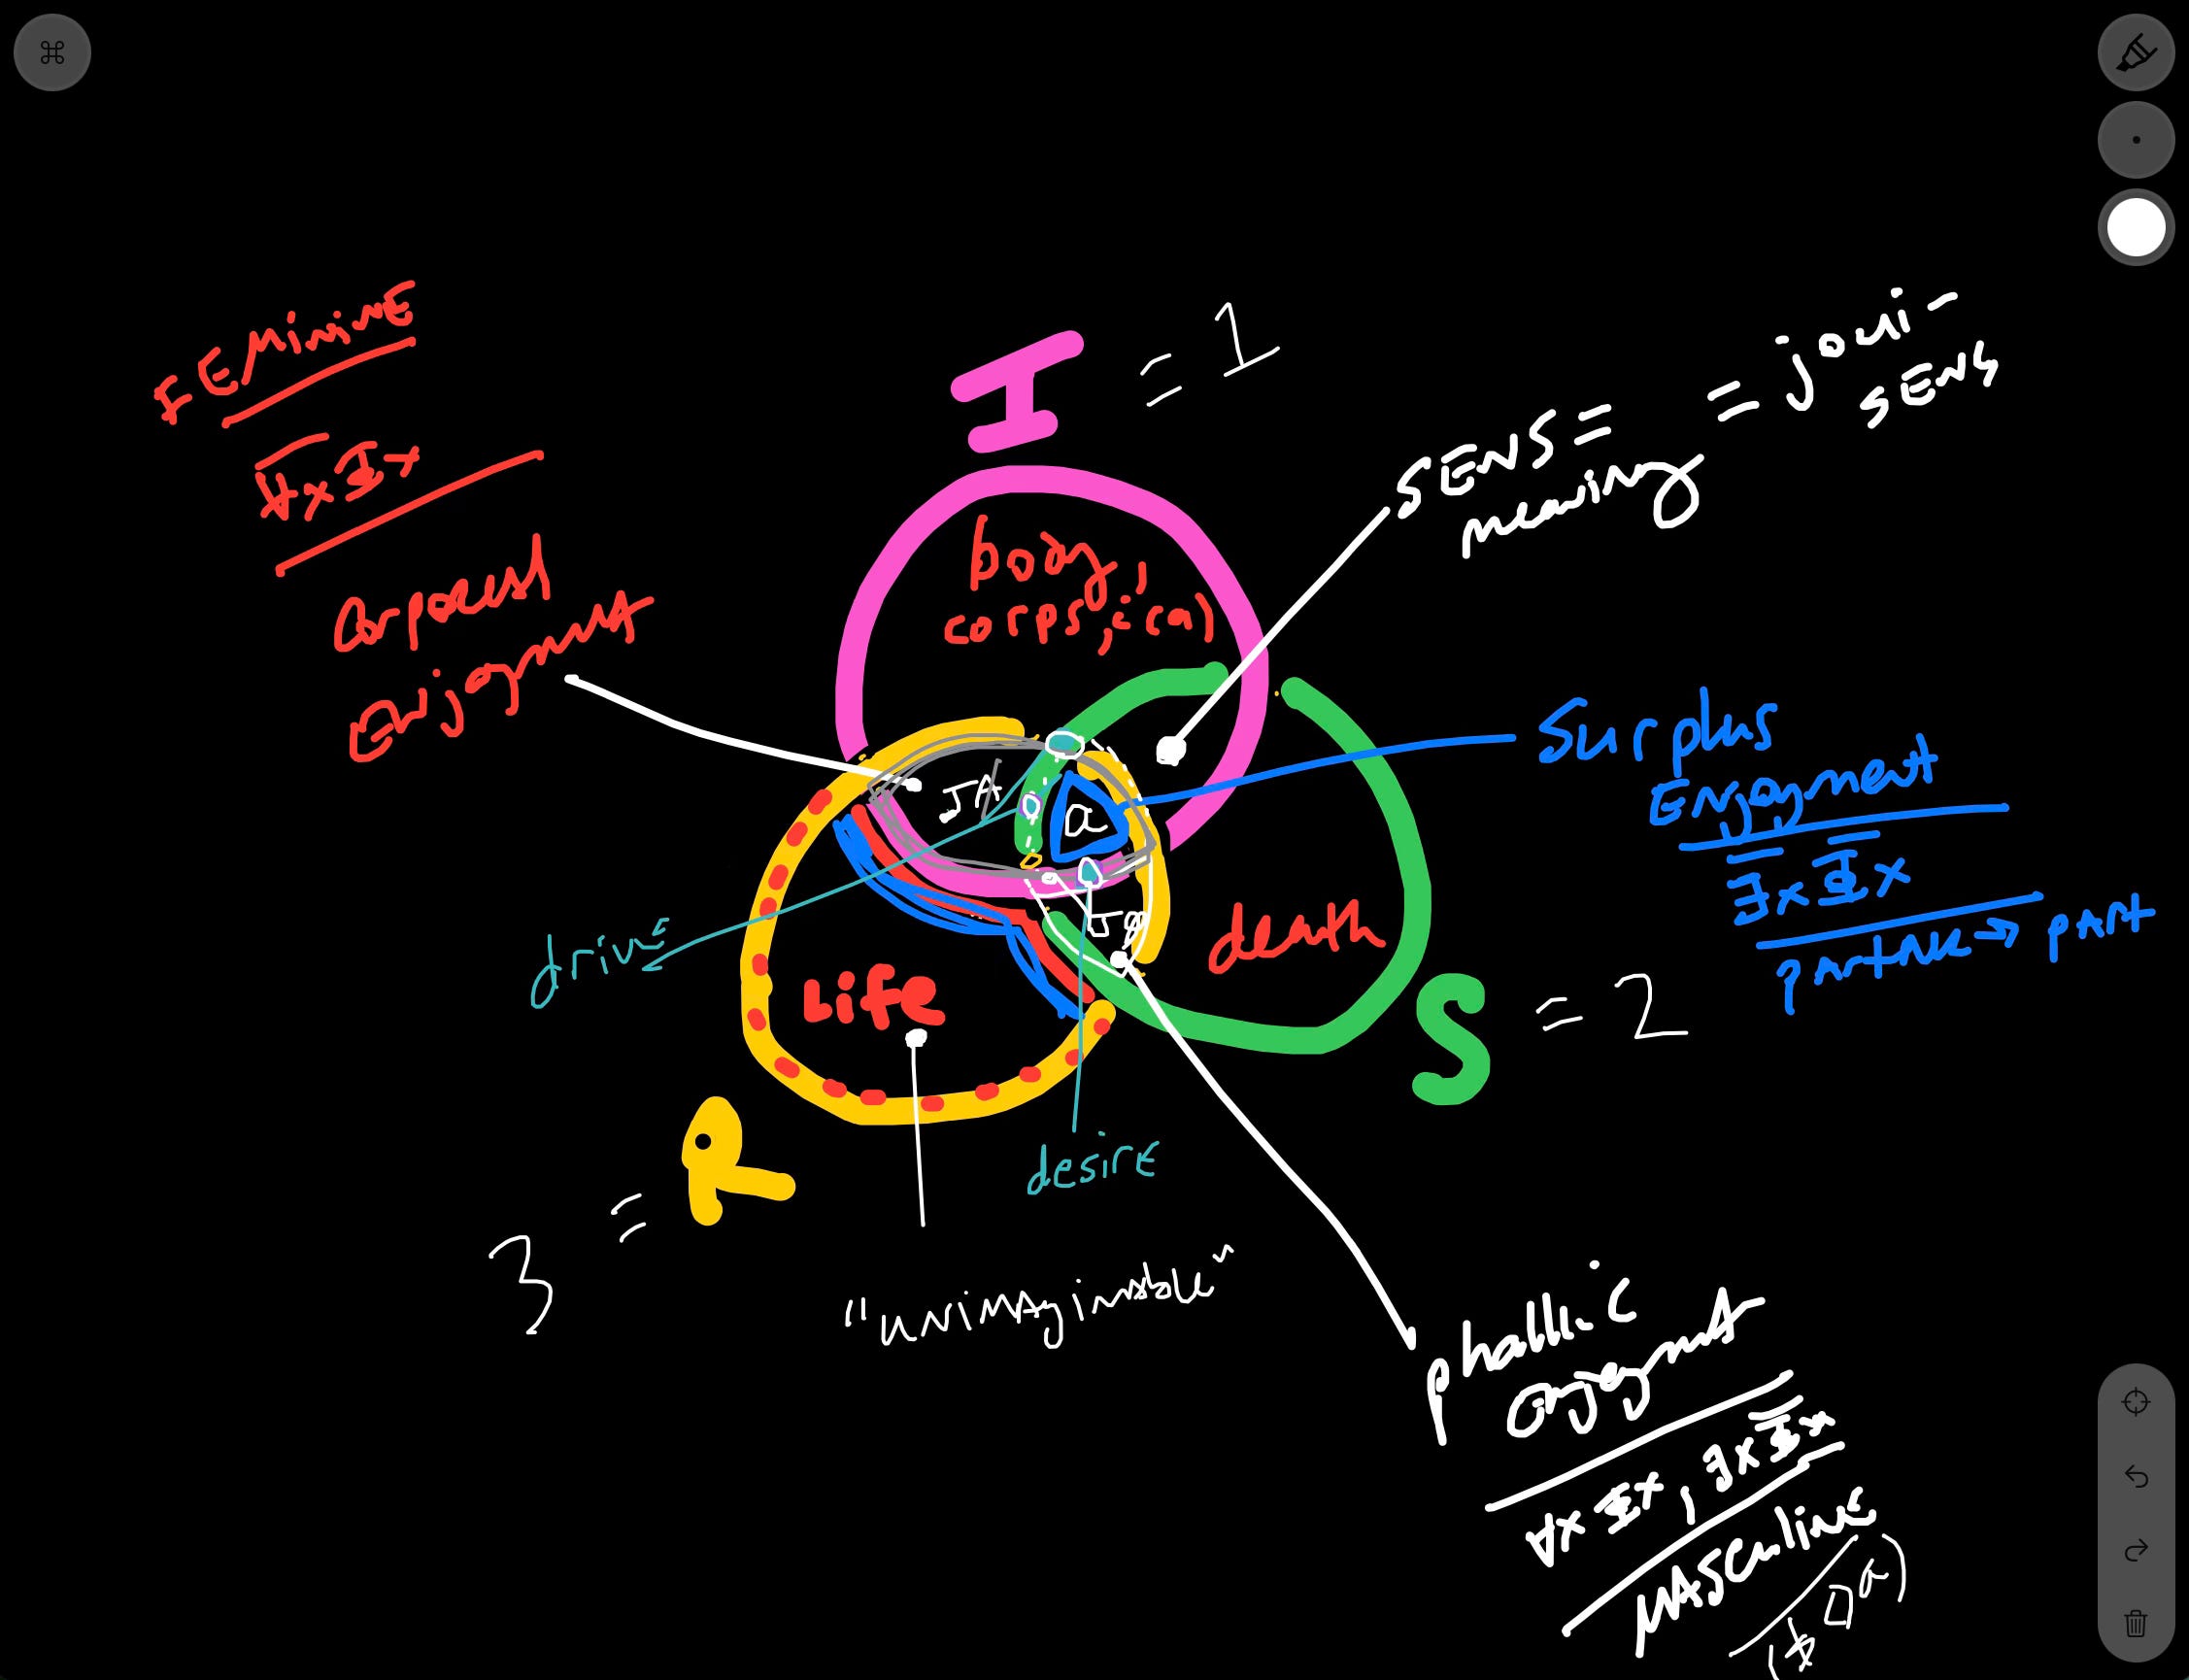 FEMININE
∀x Φx
Appeal
Enjoyment
I = 1
body,
corps,ical
SENS =
meaning
= joui-
SENS
Surplus
Enjoyment
∃x Φx
partake → part
JA
a
JΦ
death
Life
drive
desire
S = 2
3 = R
"unimaginable"
phallic
enjoyment
∀x Φx, ∃x Φx
MASCULINE